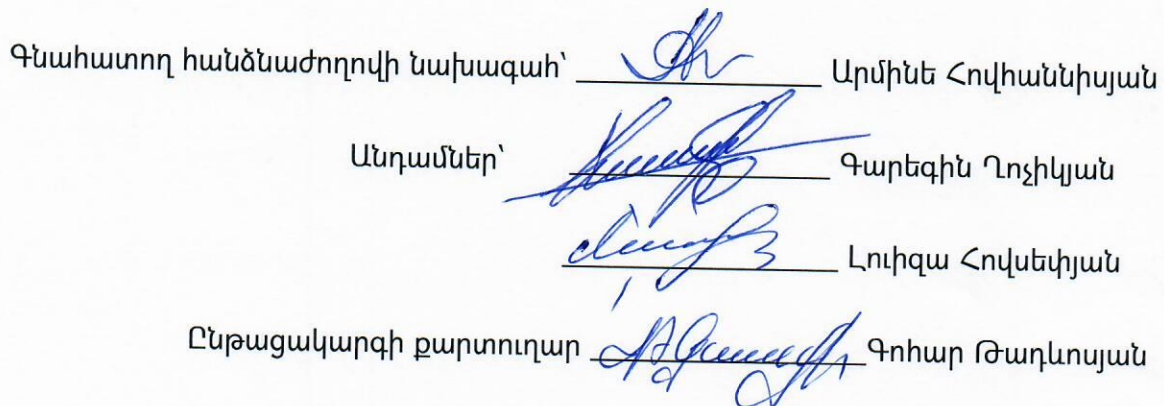 Գնահատող հանձնաժողովի նախագահ՝ Արմինե Հովհաննիսյան
Անդամներ՝ Գարեգին Ղոչիկյան
Լուիզա Հովսեփյան
Ընթացակարգի քարտուղար Գոհար Թադևոսյան